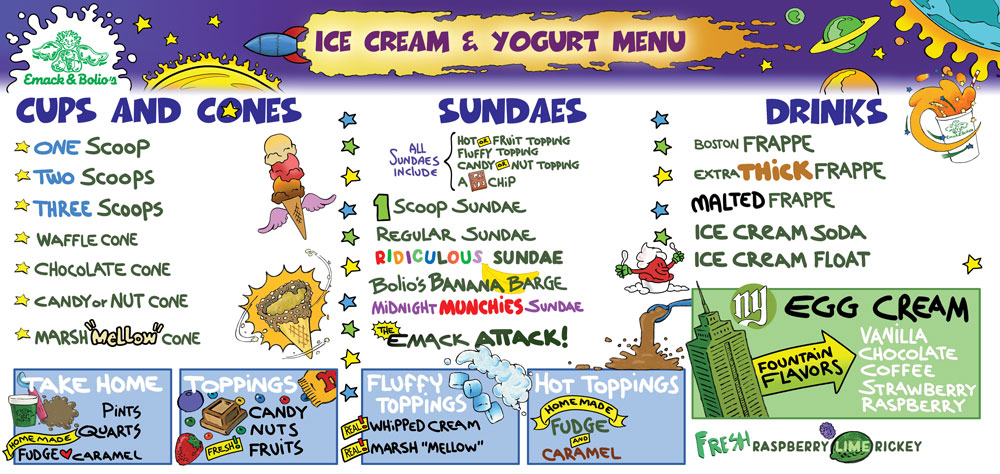 Emack & Bolio's
ICE CREAM & YOGURT MENU
CUPS AND CONES
ONE SCOOP
TWO SCOOPS
THREE SCOOPS
WAFFLE CONE
CHOCOLATE CONE
CANDY or NUT CONE
MARSH "MeLLOW" CONE
TAKE HOME
PINTS
QUARTS
HOME MADE
FUDGE CARAMEL
TOPPINGS
CANDY
NUTS
FRESH! FRUITS
SUNDAES
ALL SUNDAES INCLUDE
HOT OR FRUIT TOPPING
FLUFFY TOPPING
CANDY OR NUT TOPPING
A CHIP
1 SCOOP SUNDAE
REGULAR SUNDAE
RIDICULOUS SUNDAE
BOLIO'S BANANA BARGE
MIDNIGHT MUNCHIES SUNDAE
THE EMACK ATTACK!
FLUFFY
TOPPINGS
REAL! WHIPPED CREAM
REAL! MARSH "MELLOW"
HOT TOPPINGS
HOME MADE
FUDGE
AND
CARAMEL
DRINKS
BOSTON FRAPPE
EXTRA THICK FRAPPE
MALTED FRAPPE
ICE CREAM SODA
ICE CREAM FLOAT
NY EGG CREAM
FOUNTAIN
FLAVORS
VANILLA
CHOCOLATE
COFFEE
STRAWBERRY
RASPBERRY
FRESH RASPBERRY LIME RICKEY